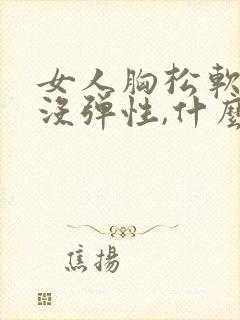 女人胸松軟
沒彈性,什麼
焦揚